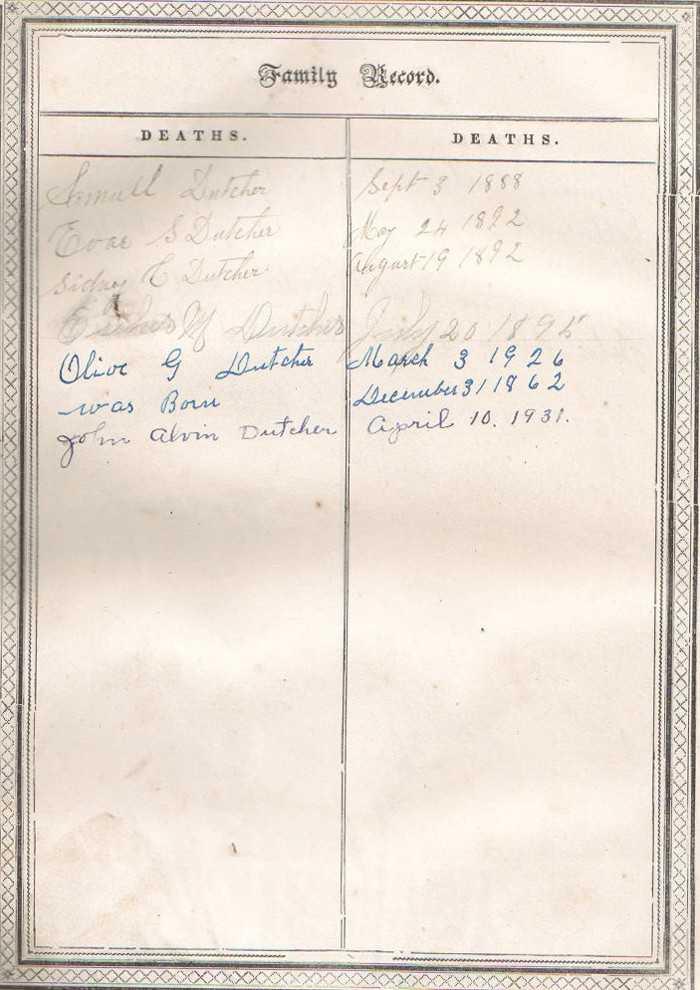 Family Record.
DEATHS. DEATHS.
Dutcher Sept 3 1888
S Dutcher May 24 1892
Sidney C Dutcher August 19 1892
M Dutcher July 20 1895
Olive G Dutcher March 3 1926
was Born December 31 1862
John Alvin Dutcher April 10. 1931.